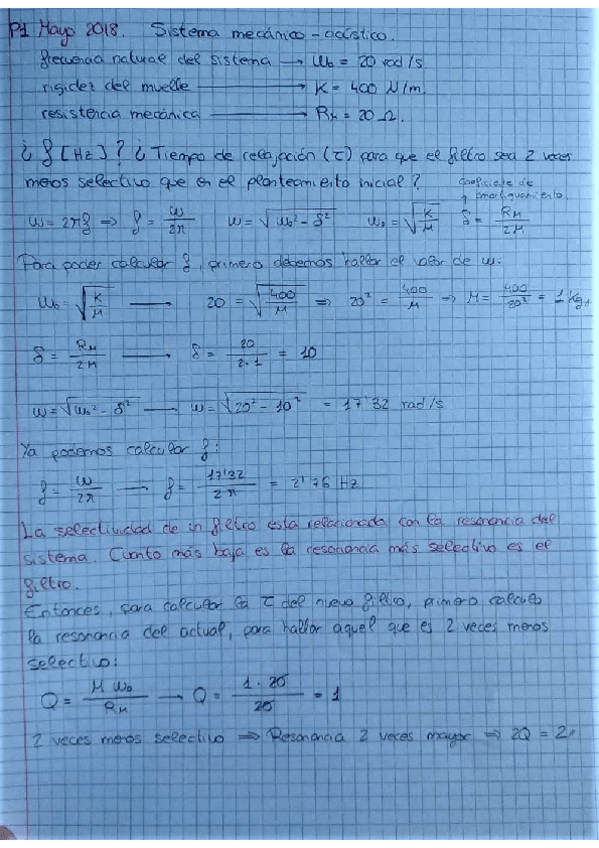 P1 Mayo 2018. Sistema mecánico-acústico.
frecuencia natural del sistema → ω₀ = 20 rad/s.
rigidez del muelle → K = 400 N/m.
resistencia mecánica → R_M = 20 Ω.
¿f [Hz]? ¿Tiempo de relajación (τ) para que el filtro sea 2 veces
menos selectivo que en el planteamiento inicial?
coeficiente de amortiguamiento.
ω = 2πf ⇒ f = ω/2π   ω = √(ω₀² - δ²)   ω₀ = √(K/M)   δ = R_M/2M
Para poder calcular f, primero debemos hallar el valor de ω:
ω₀ = √(K/M) → 20 = √(400/M) ⇒ 20² = 400/M ⇒ M = 400/20² = 1 kg.
δ = R_M/2M → δ = 20/2·1 = 10
ω = √(ω₀² - δ²) → ω = √(20² - 10²) = 17'32 rad/s
Ya podemos calcular f:
f = ω/2π → f = 17'32/2π = 2'76 Hz
La selectividad de in filtro esta relacionada con la resonancia del
sistema. Cuanto más baja es la resonancia más selectivo es el
filtro.
Entonces, para calcular la τ del nuevo filtro, primero calculo
la resonancia del actual, para hallar aquel que es 2 veces menos
selectivo:
Q = M ω₀/R_M → Q = 1·20/20 = 1
2 veces menos selectivo ⇒ Resonancia 2 veces mayor ⇒ 2Q = 2.